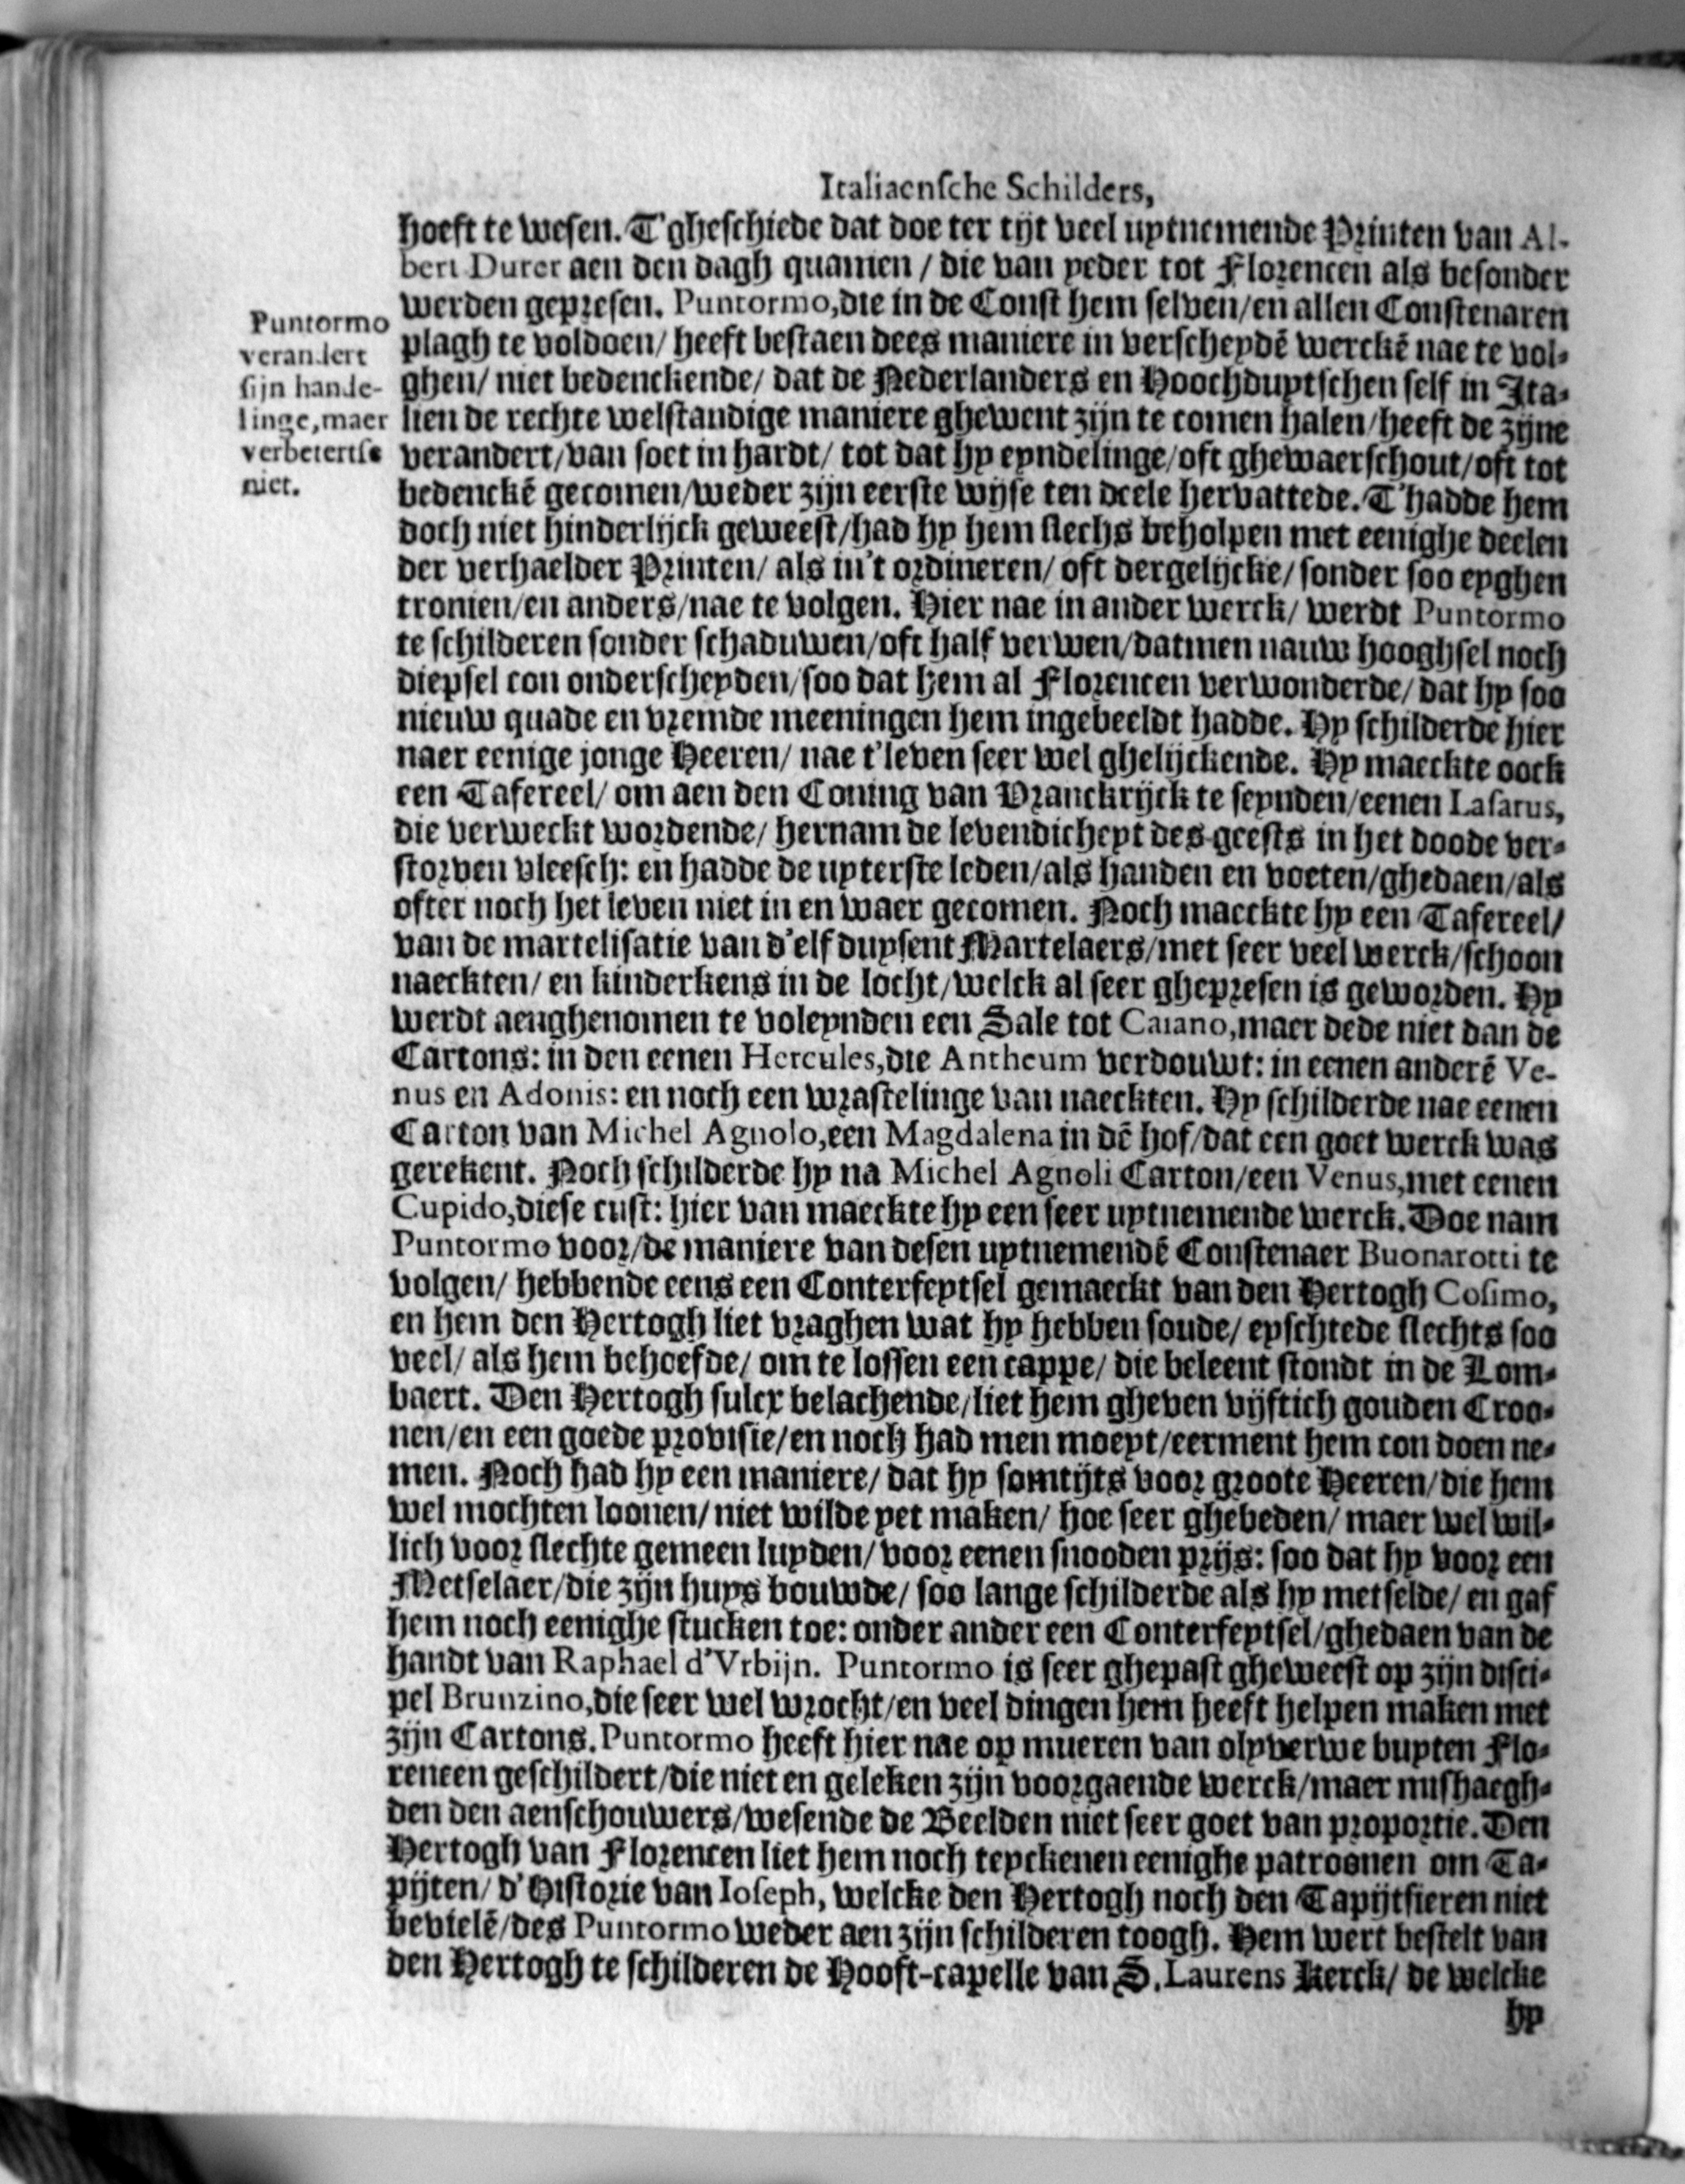 Italiaensche Schilders,
hoeft te wesen. T'gheschiede dat doe ter tijt veel uytnemende Printen van Al-
bert Durer aen den dagh quamen / die van yeder tot Florencen als besonder
werden gepresen. Puntormo, die in de Const hem selven/en allen Constenaren
plagh te voldoen/ heeft bestaen dees maniere in verscheydē werckē nae te vol-
ghen/ niet bedenckende/ dat de Nederlanders en Hoochduytschen self in Ita-
lien de rechte welstandige maniere ghewent zijn te comen halen/heeft de zijne
verandert/van soet in hardt/ tot dat hy eyndelinge/oft ghewaerschout/oft tot
bedenckē gecomen/weder zijn eerste wijse ten deele hervattede. T'hadde hem
doch niet hinderlijck geweest/had hy hem slechs beholpen met eenighe deelen
der verhaelder Printen/ als in't ordineren/ oft dergelijcke/ sonder soo eyghen
tronien/en anders/nae te volgen. Hier nae in ander werck/ werdt Puntormo
te schilderen sonder schaduwen/oft half verwen/datmen nauw hooghsel noch
diepsel con onderscheyden/soo dat hem al Florencen verwonderde/ dat hy soo
nieuw quade en vremde meeningen hem ingebeeldt hadde. Hy schilderde hier
naer eenige jonge Heeren/ nae t'leven seer wel ghelijckende. Hy maeckte oock
een Tafereel/ om aen den Coning van Vranckrijck te seynden/eenen Lasarus,
die verweckt wordende/ hernam de levendicheyt des geests in het doode ver-
storven vleesch: en hadde de uyterste leden/als handen en voeten/ghedaen/als
ofter noch het leven niet in en waer gecomen. Noch maeckte hy een Tafereel/
van de martelisatie van d'elf duysent Martelaers/met seer veel werck/schoon
naeckten/ en kinderkens in de locht/welck al seer ghepresen is geworden. Hy
werdt aenghenomen te voleynden een Sale tot Caiano, maer dede niet dan de
Cartons: in den eenen Hercules, die Antheum verdouwt: in eenen anderē Ve-
nus en Adonis: en noch een wrastelinge van naeckten. Hy schilderde nae eenen
Carton van Michel Agnolo, een Magdalena in dē hof/dat een goet werck was
gerekent. Noch schilderde hy na Michel Agnoli Carton/een Venus, met eenen
Cupido, diese cust: hier van maeckte hy een seer uytnemende werck. Doe nam
Puntormo voor/de maniere van desen uytnemendē Constenaer Buonarotti te
volgen/ hebbende eens een Conterfeytsel gemaeckt van den Hertogh Cosimo,
en hem den Hertogh liet vraghen wat hy hebben soude/ eyschtede slechts soo
veel/ als hem behoefde/ om te lossen een cappe/ die beleent stondt in de Lom-
baert. Den Hertogh sulcx belachende/liet hem gheven vijftich gouden Croo-
nen/en een goede provisie/en noch had men moeyt/eerment hem con doen ne-
men. Noch had hy een maniere/ dat hy somtijts voor groote Heeren/die hem
wel mochten loonen/ niet wilde yet maken/ hoe seer ghebeden/ maer wel wil-
lich voor slechte gemeen luyden/ voor eenen snooden prijs: soo dat hy voor een
Metselaer/die zijn huys bouwde/ soo lange schilderde als hy metselde/ en gaf
hem noch eenighe stucken toe: onder ander een Conterfeytsel/ghedaen van de
handt van Raphael d'Vrbijn. Puntormo is seer ghepast gheweest op zijn disci-
pel Brunzino, die seer wel wrocht/en veel dingen hem heeft helpen maken met
zijn Cartons. Puntormo heeft hier nae op mueren van olyverwe buyten Flo-
rencen geschildert/die niet en geleken zijn voorgaende werck/maer mishaegh-
den den aenschouwers/wesende de Beelden niet seer goet van proportie. Den
Hertogh van Florencen liet hem noch teyckenen eenighe patroonen om Ta-
pijten/ d'Historie van Ioseph, welcke den Hertogh noch den Tapijtsieren niet
bevielē/des Puntormo weder aen zijn schilderen toogh. Hem wert bestelt van
den Hertogh te schilderen de Hooft-capelle van S. Laurens Kerck/ de welcke
hy
Puntormo
verandert
sijn hande-
linge, maer
verbetertse
niet.